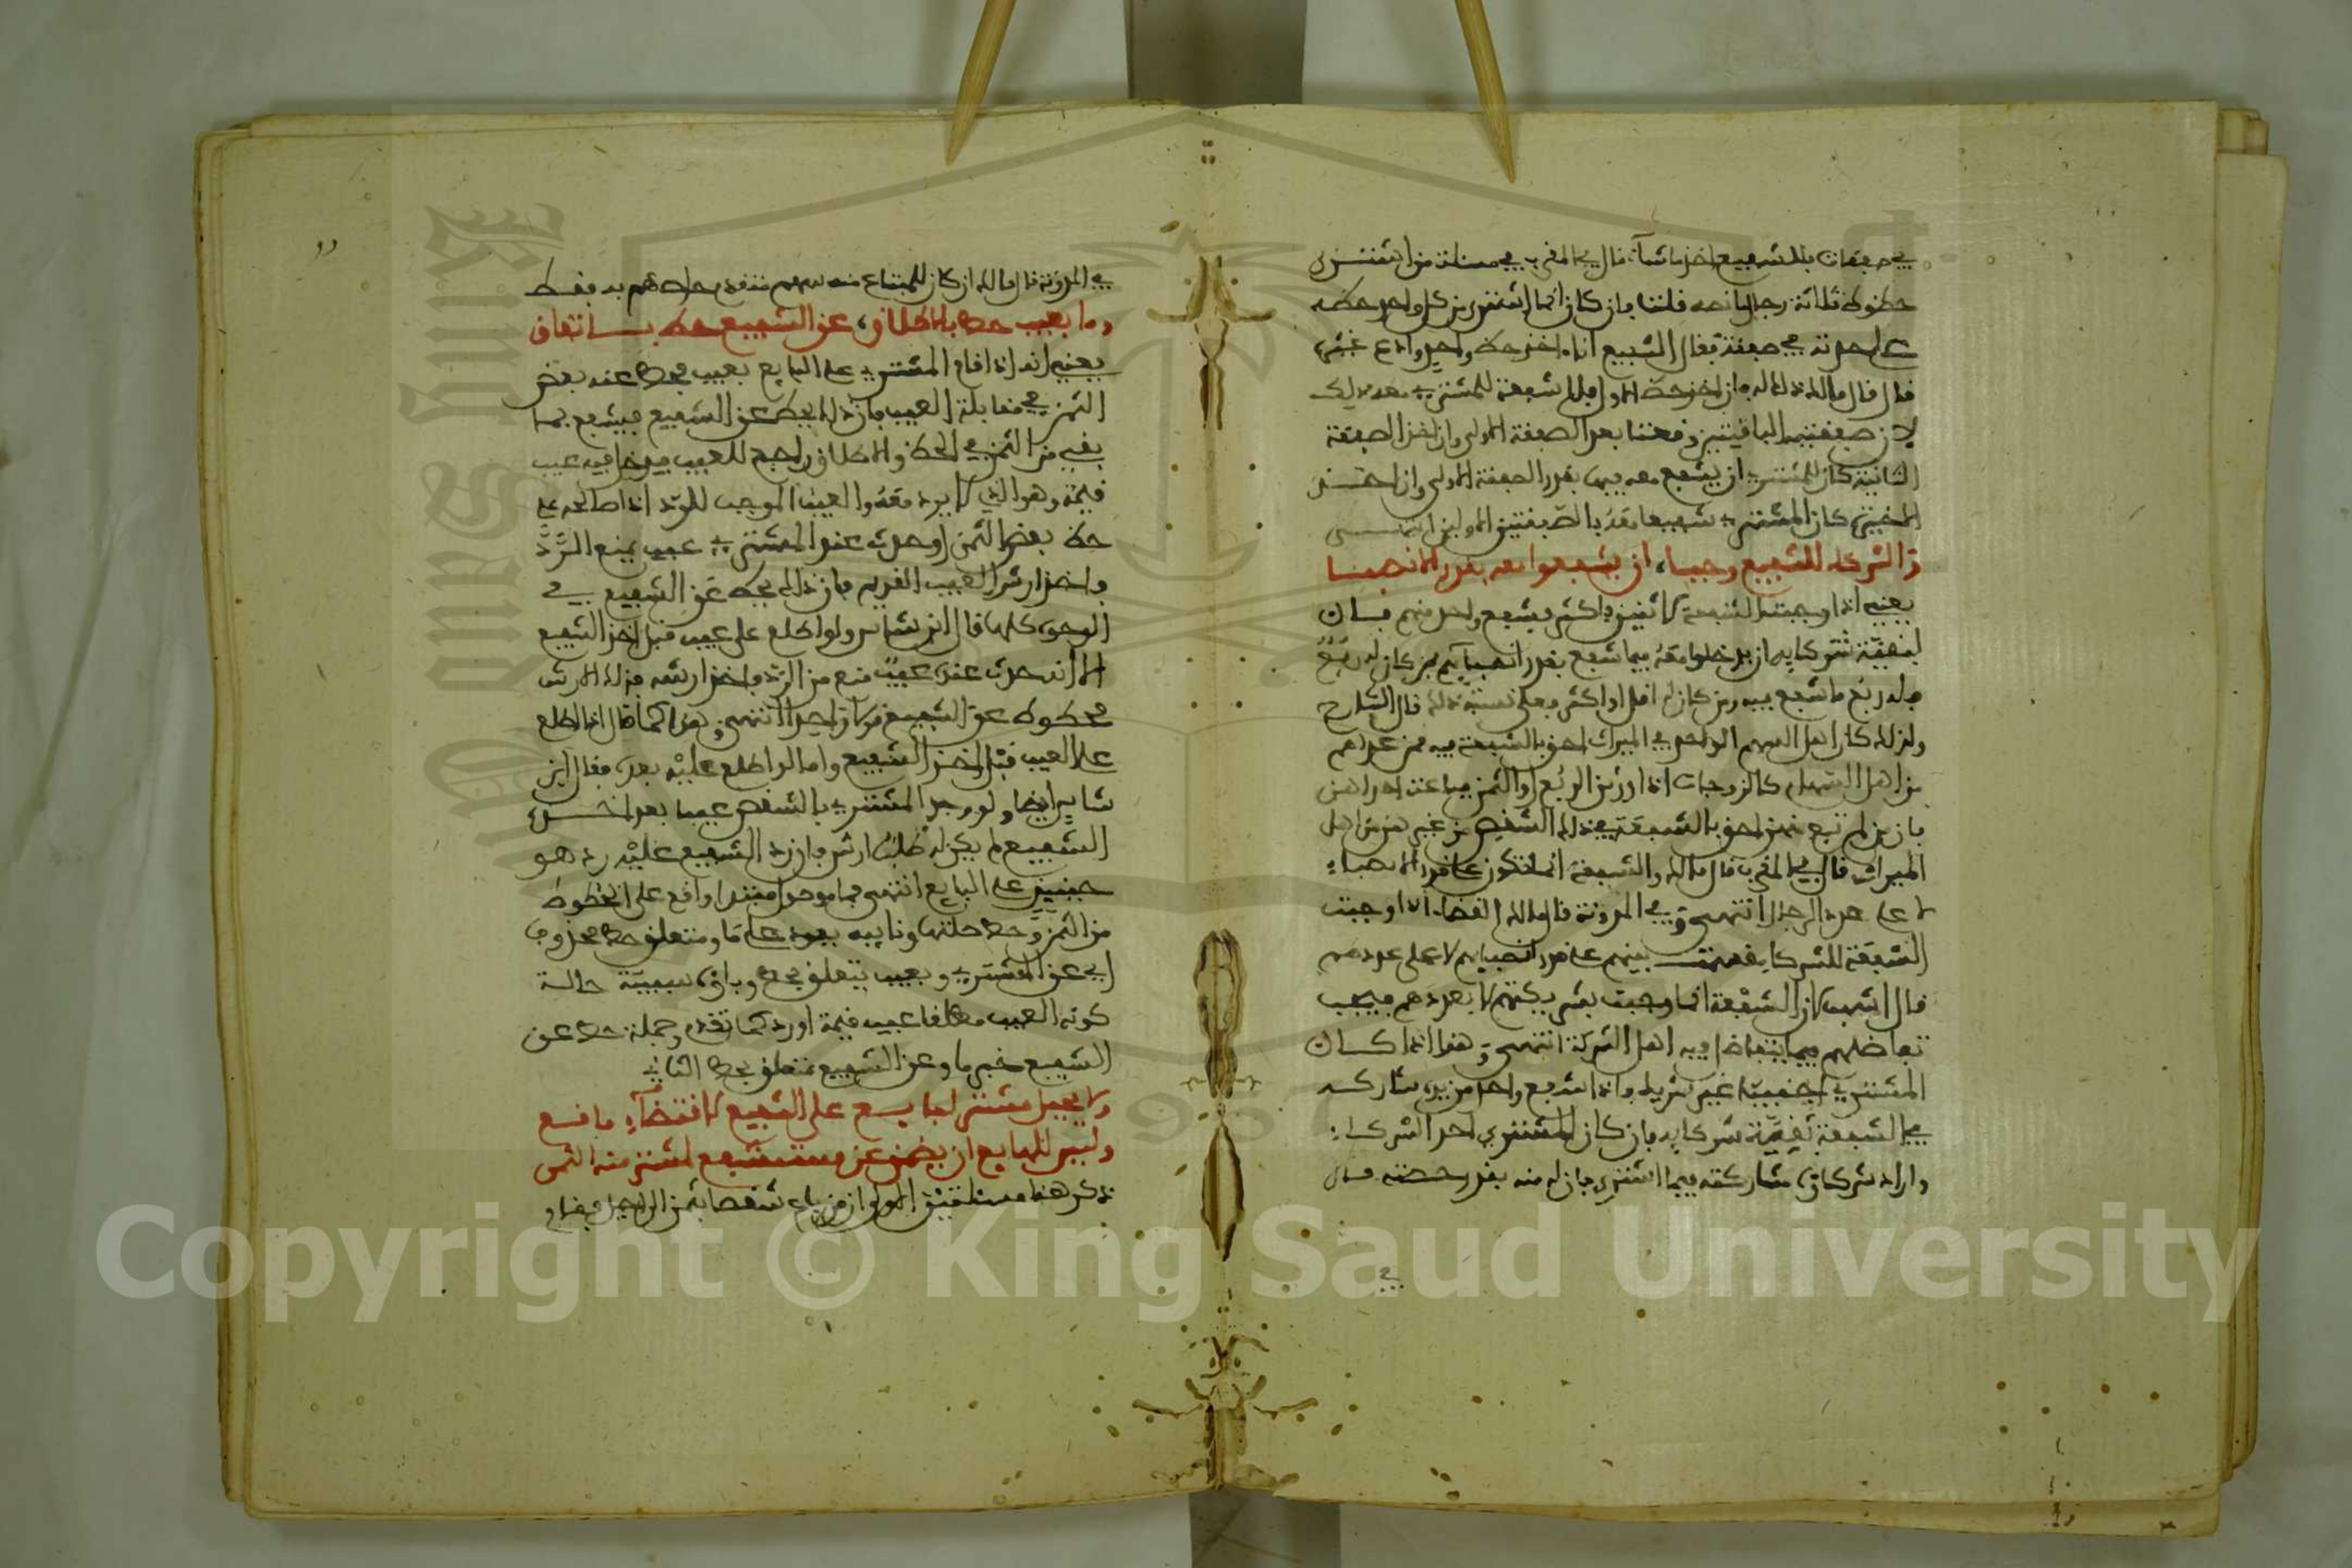 في صفقات فللشفيع اخذ ما شاء قال في المقرب في مسئلة من اشترى
حظوظ ثلاثة رجال انه قلنا فان كان انما اشترى من كل واحد حظه
على حدته في صفقة فقال الشفيع انا اخذ حظ واحد وادع غيره
قال قال مالك ذلك له فان اخذ حظ الاول فلا شفعة للمشتري معه
لان صفقتيه الباقيتين وقعتا بعد الصفقة الاولى وان اخذ الصفقة
الثانية كان للمشتري ان يشفع معه فيها بقدر الصفقة الاولى وان اخذ
الاخيرة كان المشتري شفيعا معه بالصفقتين الاوليين انتهى
ذا الشركاء للشفيع وجبا، ان يشفعوا معه بقدر الانصبا
يعني اذا وجبت الشفعة لاثنين فاكثر فشفع واحد منهم فان
لبقية شركايه ان يدخلوا معه فيما شفع بقدر انصبايهم فمن كان له ربع
فله ربع ما شفع فيه ومن كان له اقل او اكثر فعلى نسبة ذلك قال الشارح
ولذلك كان اهل السهم الواحد في الميراث احق بالشفعة فيه ممن عداهم
من اهل السهام كالزوجات اذا ورثن الربع او الثمن فباعت احداهن
فان من لم تبع منهن احق بالشفعة في ذلك الشقص من غيرهن من اهل
الميراث قال في المقرب قال مالك والشفعة انما تكون على قدر الانصباء
لا على عدد الرجال انتهى وفي المدونة قال مالك القضاء اذا وجبت
الشفعة للشركا قسمت بينهم على قدر انصبايهم لا على عددهم
قال اشهب لان الشفعة انما وجبت بشركتهم لا بعددهم فيجب
تفاضلهم فيها بتفاضل اهل الشركة انتهى وهذا اذا كان
المشتري اجنبيا غير شريك واذا شفع واحد من يد شاركه
في الشفعة بقية شركايه فان كان المشتري احد الشركاء
واراد شركاؤه مشاركته فيما اشترى فان له منه بقدر حصته قال
في
في المدونة قال مالك ان كان للمبتاع منه سهم متقدم حاصصهم به فقط
وما بعيب حط بالاطلاق، عن الشفيع حط باتفاق
يعني انه اذا قام المشتري على البايع بعيب فحط عنه بعض
الثمن في مقابلة العيب فان ذلك يحط عن الشفيع فيشفع بما
بقي من الثمن في الحط والاطلاق راجع للعيب فيدخل فيه عيب
قيمة وهو الذي لا يرد معه والعيب الموجب للرد اذا صالحه على
حط بعض الثمن او حدث عند المشتري عيب يمنع الرد
واخذ ارش العيب القديم فان ذلك يحط عن الشفيع في
الوجوه كلها قال ابن شاس ولو اطلع على عيب قبل اخذ الشفيع
الا انه حدث عنده عيب منع من الرد فاخذ ارشه فذلك الارش
محطوط عن الشفيع قولا واحدا انتهى وهذا كما قال اذا اطلع
على العيب قبل اخذ الشفيع واما لو اطلع عليه بعد فقال ابن
شاس ايضا ولو وجد المشتري بالشقص عيبا بعد اخذ
الشفيع لم يكن له طلب ارش فان رد الشفيع عليه رد هو
حينيذ على البايع انتهى فما موصول مبتدا واقع على الحظوظ
من الثمن وحط صلتها ونايبه يعود على ما ومتعلق حط محذوف
اي عن المشتري وبعيب يتعلق بحط
كونه العيب مطلقا عيب قيمة او رد كما تقدم وجملة حط عن
الشفيع خبر ما وعن الشفيع متعلق بحط الثاني
ولا يحيل مشتر لبايع على الشفيع لاقتضاء ما فسع
وليس للبايع ان يضمن عن مستشفع لمشتر منه الثمن
ذكر هنا مسئلتين الاولى ان من باع شقصا بثمن الى اجل فقام